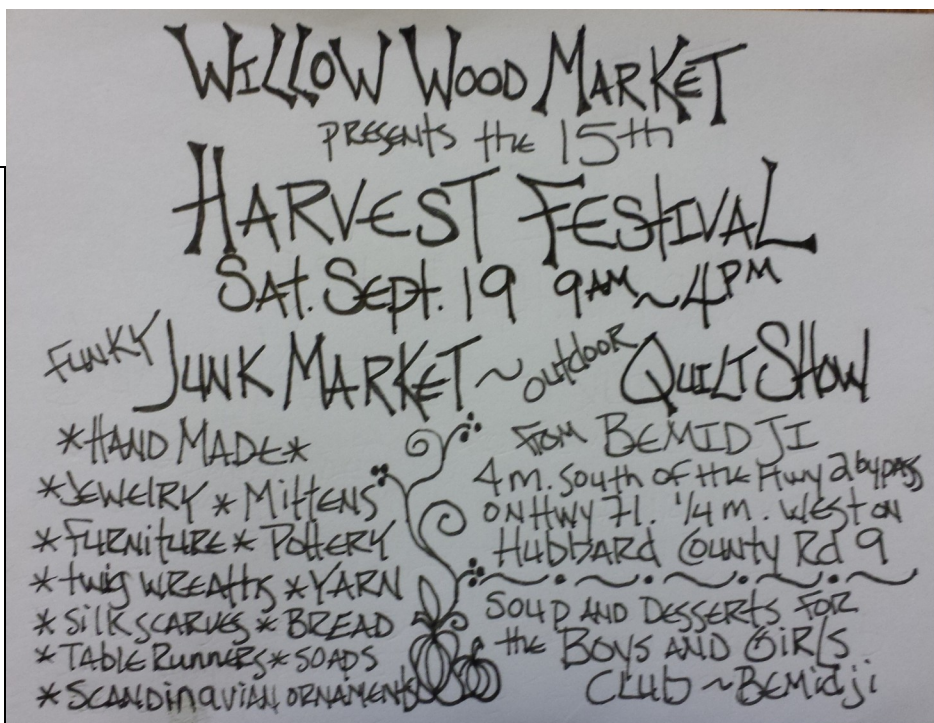 WILLOW WOOD MARKET
PRESENTS the 15th
HARVEST FESTIVAL
Sat. Sept. 19 9AM~4PM
FUNKY JUNK MARKET ~ outdoor QUILT SHOW
*HAND MADE*
*JEWELRY *MITTENS
*FURNITURE * POTTERY
*twig WREATHS *YARN
*SILK SCARVES * BREAD
*TABLE RUNNERS * SOAPS
*SCANDINAVIAN ORNAMENTS
FROM BEMIDJI
4 m. SOUTH OF the Hwy 2 bypass
ON HWY 71. 1/4 m. WEST ON
HUBBARD COUNTY Rd 9
SOUP AND DESSERTS FOR
the BOYS AND GIRLS
CLUB ~BEMIDJI